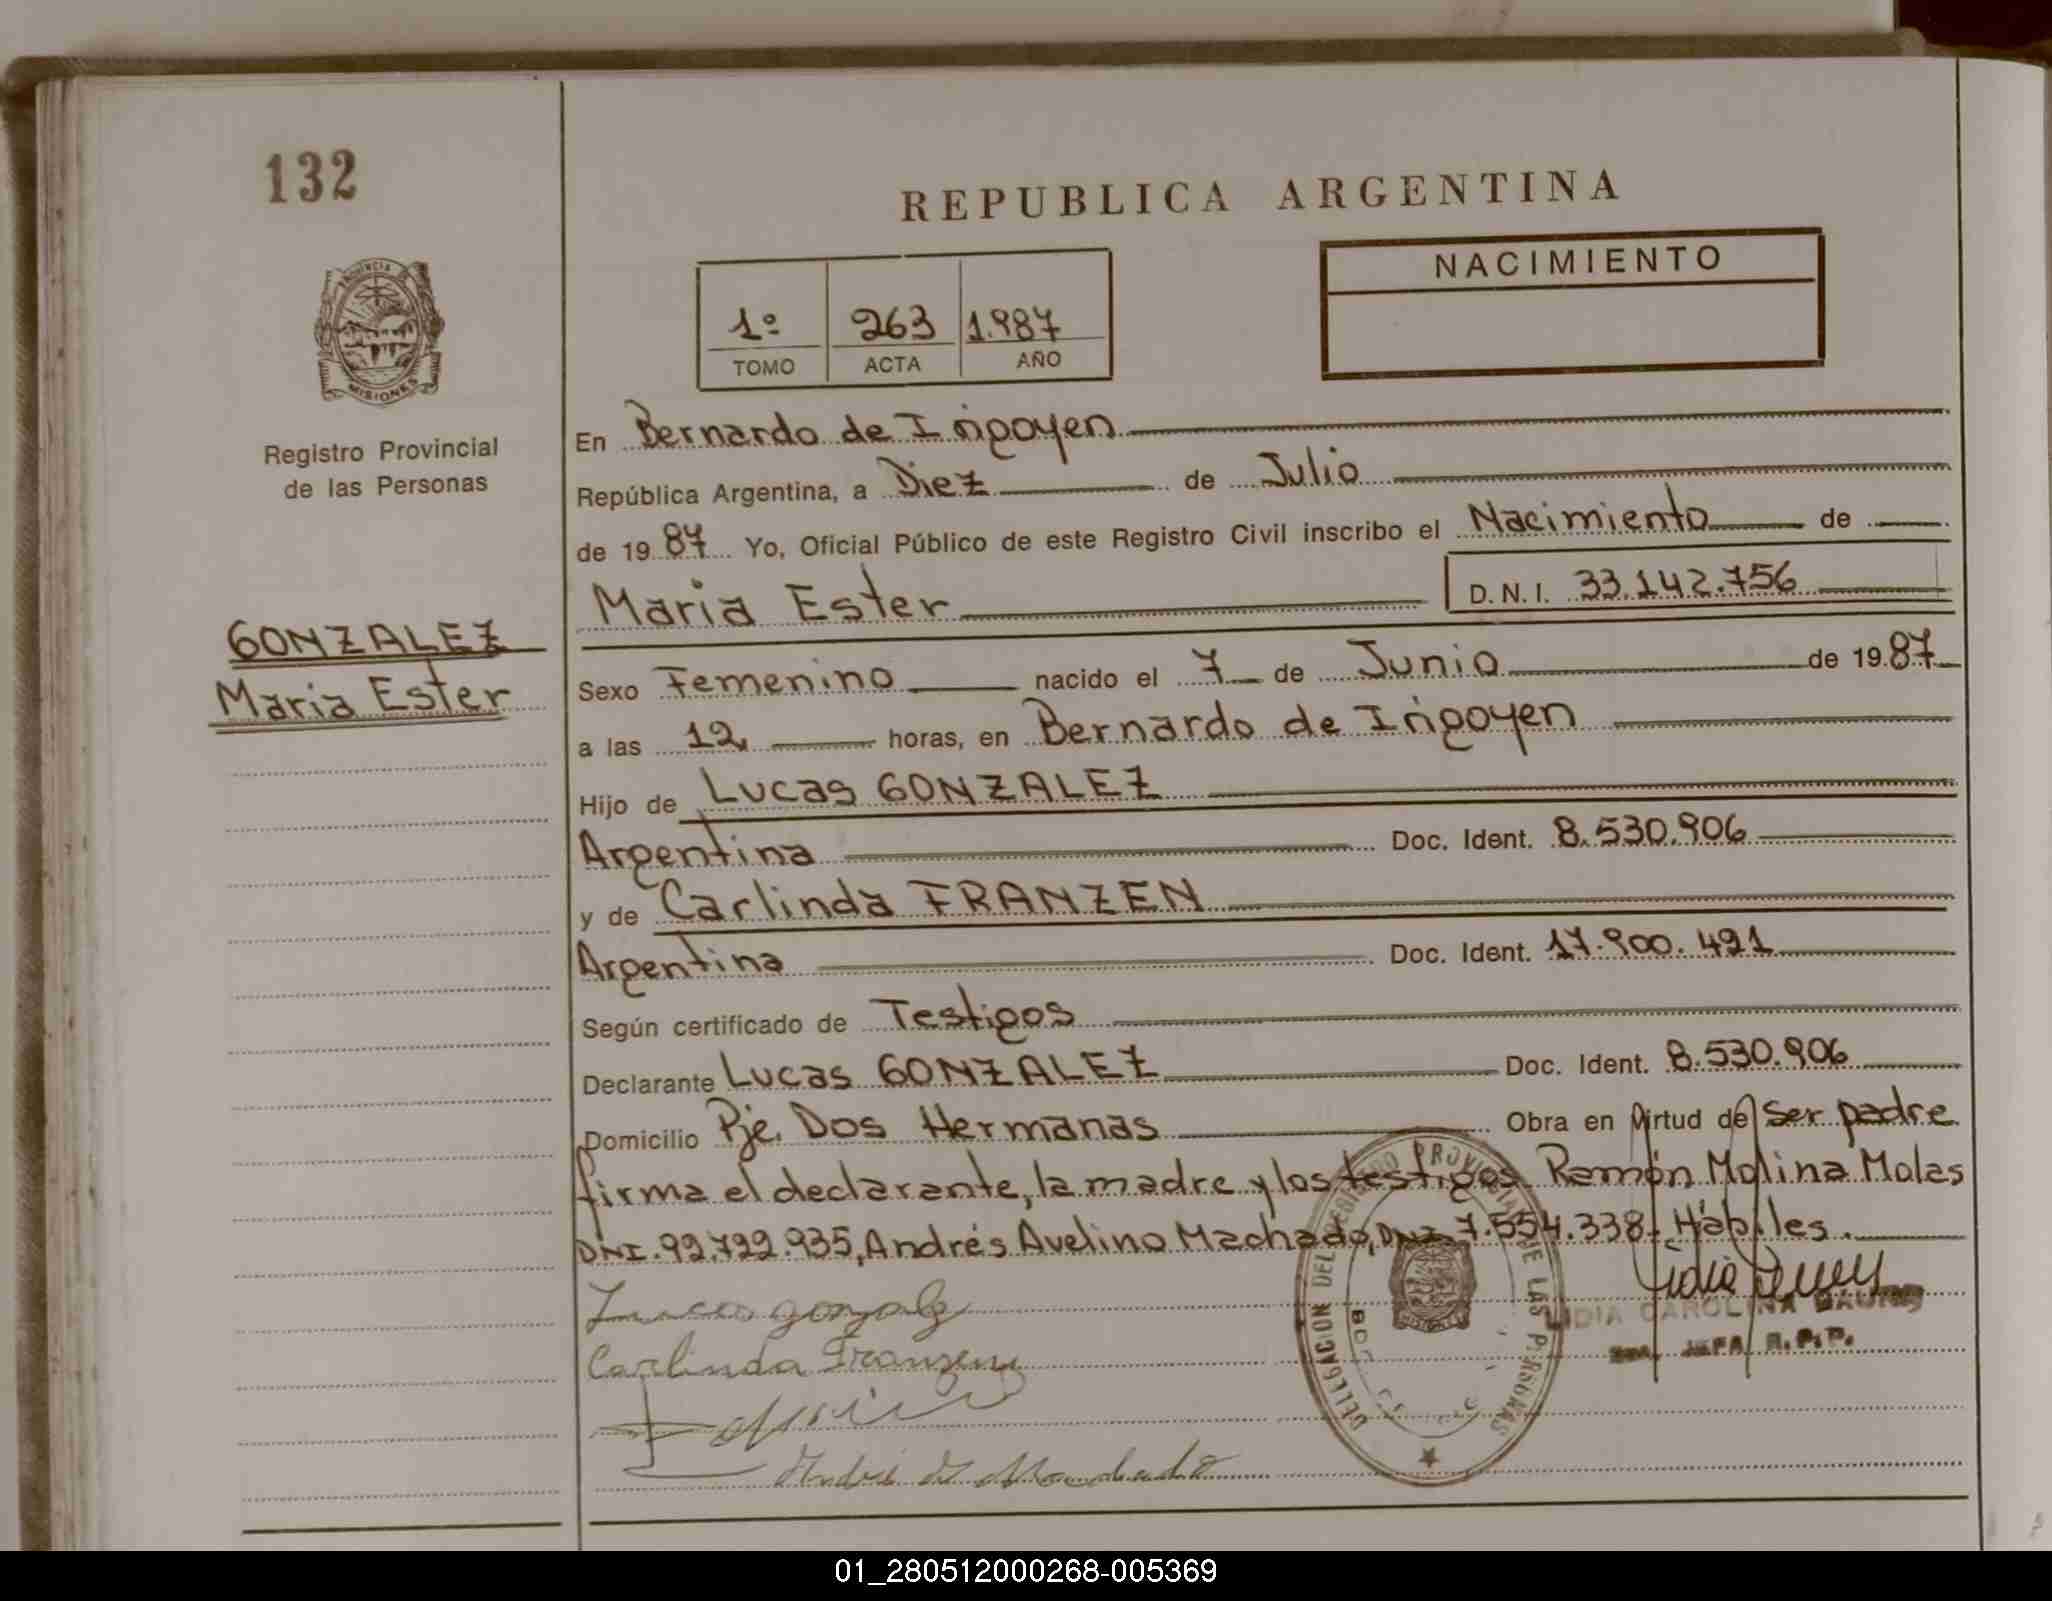 132
REPUBLICA ARGENTINA
NACIMIENTO
1º 263 1.987
TOMO ACTA AÑO
PROVINCIA DE
MISIONES
Registro Provincial
de las Personas
GONZALEZ
Maria Ester
En Bernardo de Irigoyen
República Argentina, a Diez de Julio
de 19 87 Yo, Oficial Público de este Registro Civil inscribo el Nacimiento de
Maria Ester D.N.I. 33.142.756
Sexo Femenino nacido el 7 de Junio de 19 87
a las 12 horas, en Bernardo de Irigoyen
Hijo de Lucas GONZALEZ
Argentina Doc. Ident. 8.530.906
y de Carlinda FRANZEN
Argentina Doc. Ident. 17.900.491
Según certificado de Testigos
Declarante Lucas GONZALEZ Doc. Ident. 8.530.906
Domicilio Pje. Dos Hermanas Obra en Virtud de Ser padre
firma el declarante, la madre y los testigos Ramón Molina Molas
DNI. 92.722.935, Andrés Avelino Machado, DNI. 7.554.338. Hábiles.
Lucas gonzalez
Carlinda Franzen
DELEGACION DEL REGISTRO PROVINCIAL DE LAS PERSONAS
LIDIA CAROLINA
JEFA R.P.P.
01_280512000268-005369